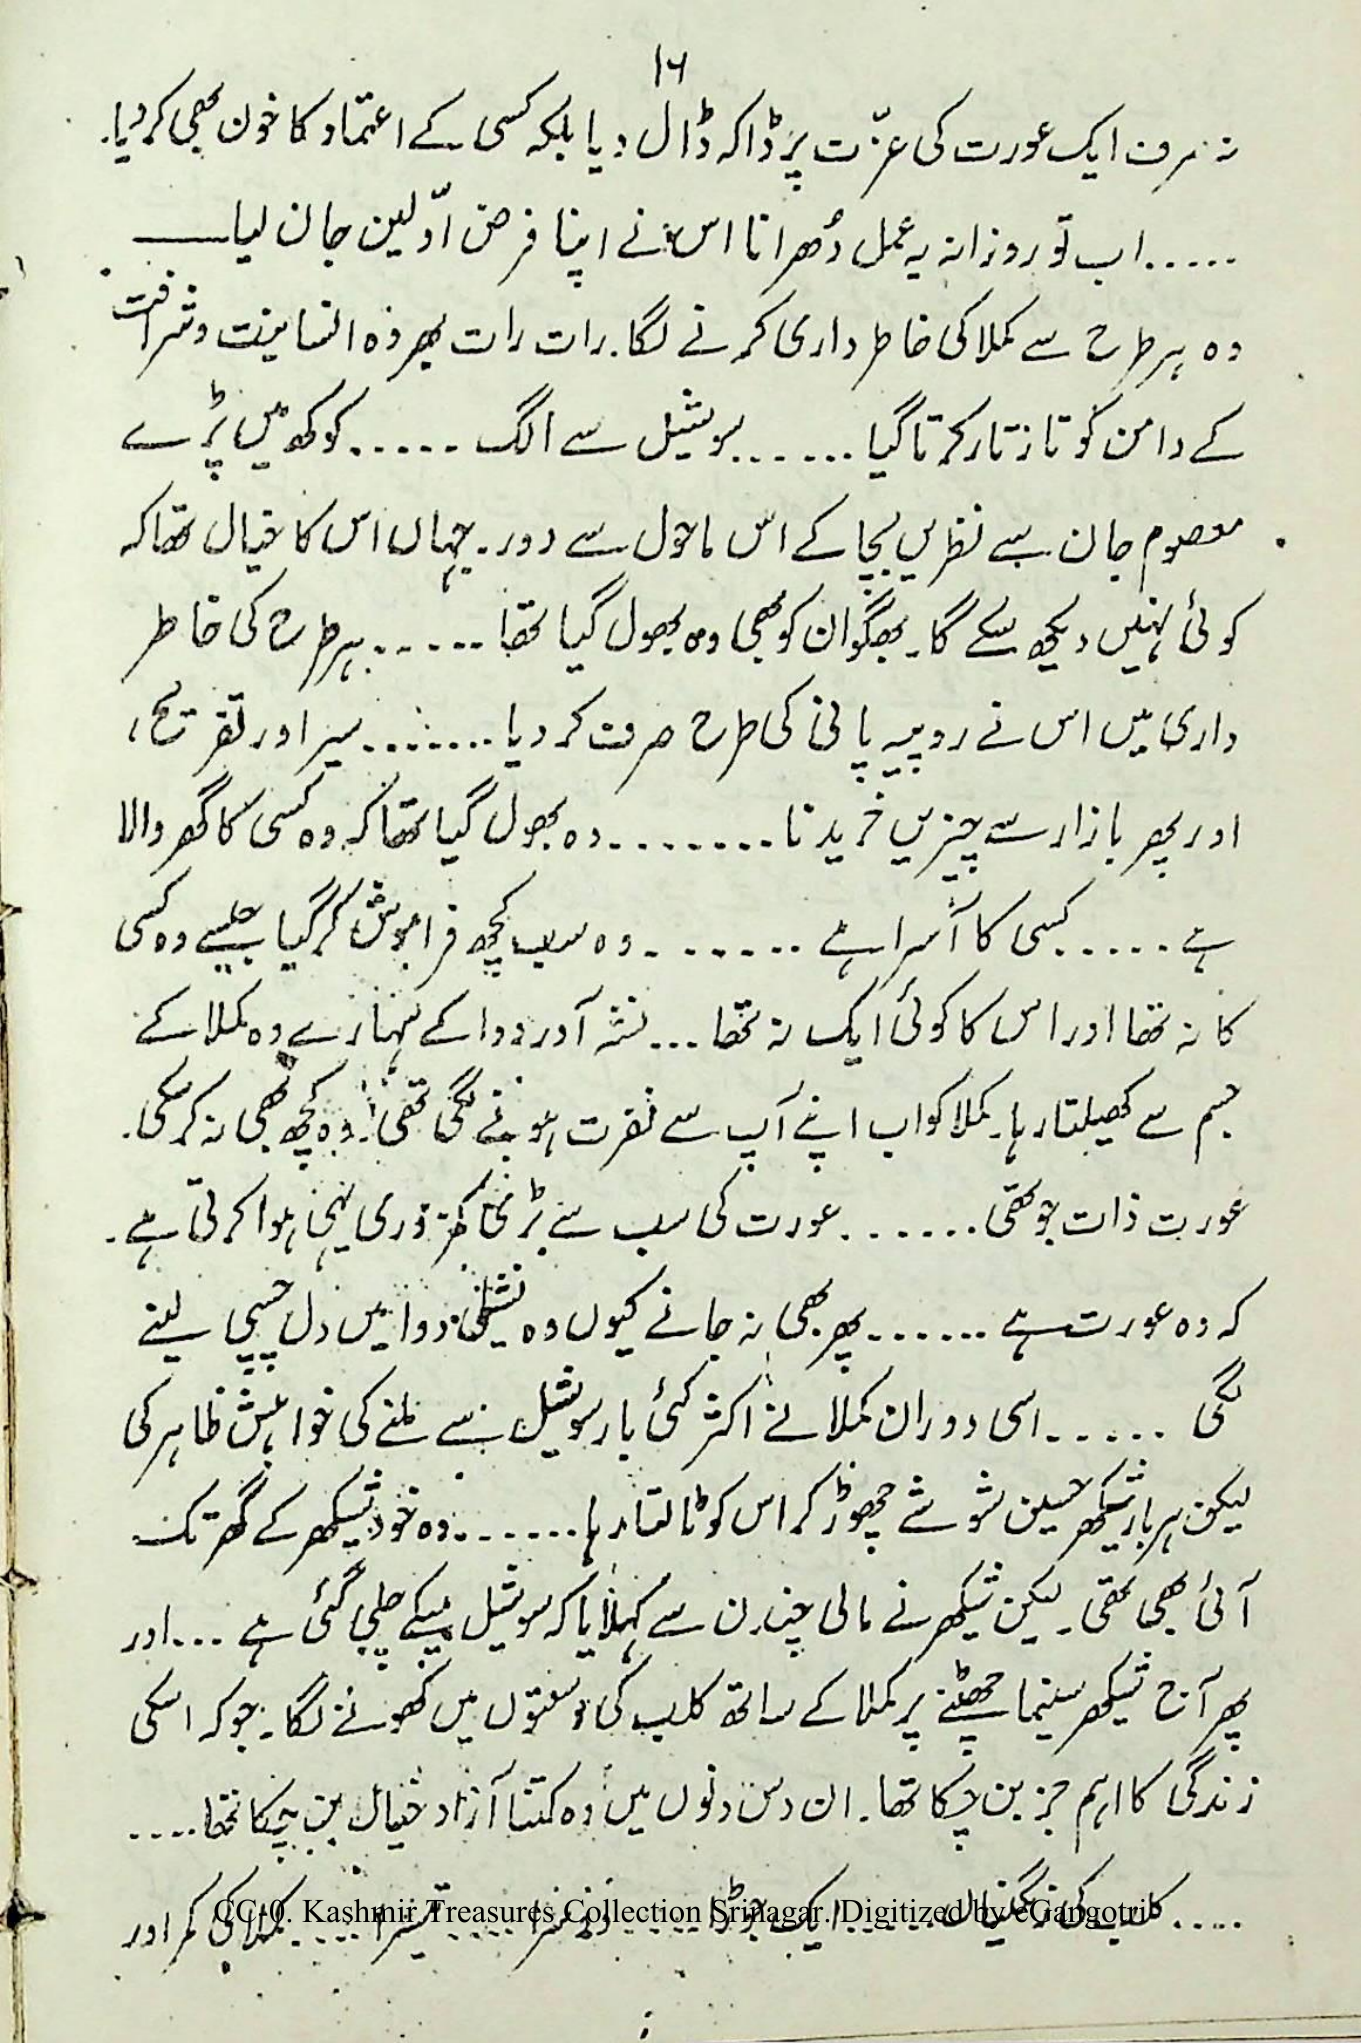 ۱۶
نہ صرف ایک عورت کی عزّت پر ڈاکہ ڈال دیا بلکہ کسی کے اعتماد کا خون بھی کر دیا۔
.....اب تو روزانہ یہ عمل دُھرانا اس نے اپنا فرض اوّلین جان لیا۔
وہ ہر طرح سے کملا کی خاطر داری کرنے لگا۔ رات رات بھر وہ انسانیت و شرافت
کے دامن کو تار تار کرتا گیا ......سوشیل سے الگ .....کوکھ میں پڑے
معصوم جان سے نظریں بچا کے اس ماحول سے دور۔ جہاں اس کا خیال تھا کہ
کوئی نہیں دیکھ سکے گا۔ بھگوان کو بھی وہ بھول گیا تھا ......ہر طرح کی خاطر
داری میں اس نے روپیہ پانی کی طرح صرف کر دیا ........سیر اور تفریح،
اور پھر بازار سے چیزیں خریدنا ........وہ بھول گیا تھا کہ وہ کسی کا گھر والا
ہے .....کسی کا آسرا ہے .......وہ سب کچھ فراموش کر گیا جیسے وہ کسی
کا نہ تھا اور اس کا کوئی ایک نہ تھا ...نشہ آور دوا کے سہارے وہ کملا کے
جسم سے کھیلتا رہا۔ کملا کو اب اپنے آپ سے نفرت ہونے لگی تھی۔ وہ کچھ بھی نہ کر سکی۔
عورت ذات جو تھی ......عورت کی سب سے بڑی کمزوری یہی ہوا کرتی ہے۔
کہ وہ عورت ہے ......پھر بھی نہ جانے کیوں وہ نشیلی دوا میں دل چسپی لینے
لگی .....اسی دوران کملا نے اکثر کئی بار سوشیل سے ملنے کی خواہش ظاہر کی
لیکن ہر بار شیکھر حسین شوشے چھوڑ کر اس کو ٹالتا رہا ......وہ خود شیکھر کے گھر تک
آئی بھی تھی۔ لیکن شیکھر نے مالی چندن سے کہلایا کہ سوشیل میکے چلی گئی ہے ...اور
پھر آج شیکھر سینما چھٹنے پر کملا کے ساتھ کلب کی وسعتوں میں کھونے لگا۔ جو کہ اسکی
زندگی کا اہم جز بن چکا تھا۔ ان دس دنوں میں وہ کتنا آزاد خیال بن چکا تھا....
.....کلب کی رنگینیاں......ایک جوڑا......دوسرا.....تیسرا.....کملا کی کمر اور
CC-0. Kashmir Treasures Collection Srinagar. Digitized by eGangotri